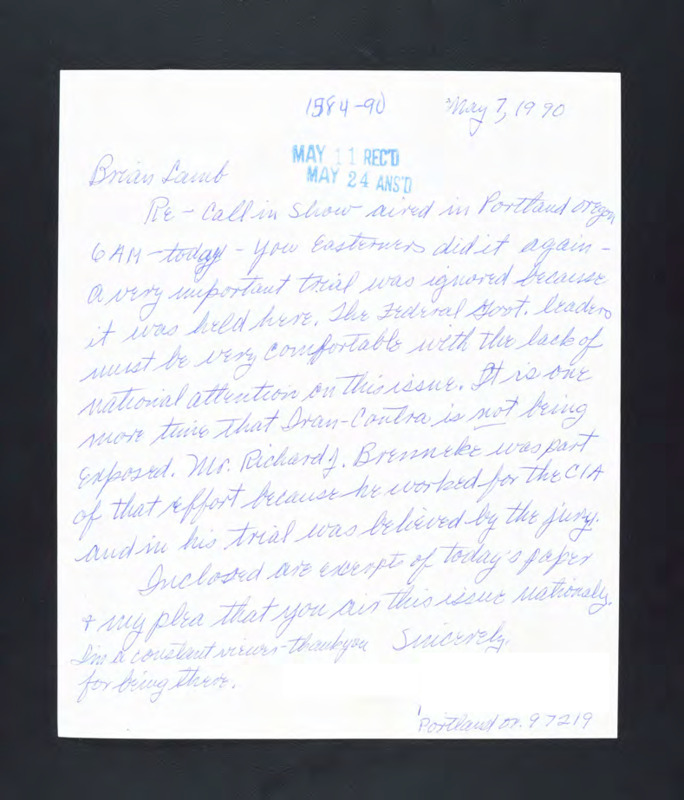 1984-90 May 7, 1990
MAY 11 REC'D
MAY 24 ANS'D
Brian Lamb
Re - Call in Show aired in Portland Oregon
6 AM - today - you Easterners did it again -
a very important trial was ignored because
it was held here. The Federal Govt. leaders
must be very comfortable with the lack of
national attention on this issue. It is one
more time that Iran-Contra is not being
exposed. Mr. Richard J. Brenneke was part
of that effort because he worked for the CIA
and in his trial was believed by the jury.
Inclosed are excerpts of today's paper
& my plea that you air this issue nationally.
I'm a constant viewer - thank you Sincerely,
for being there.
Portland Or. 97219